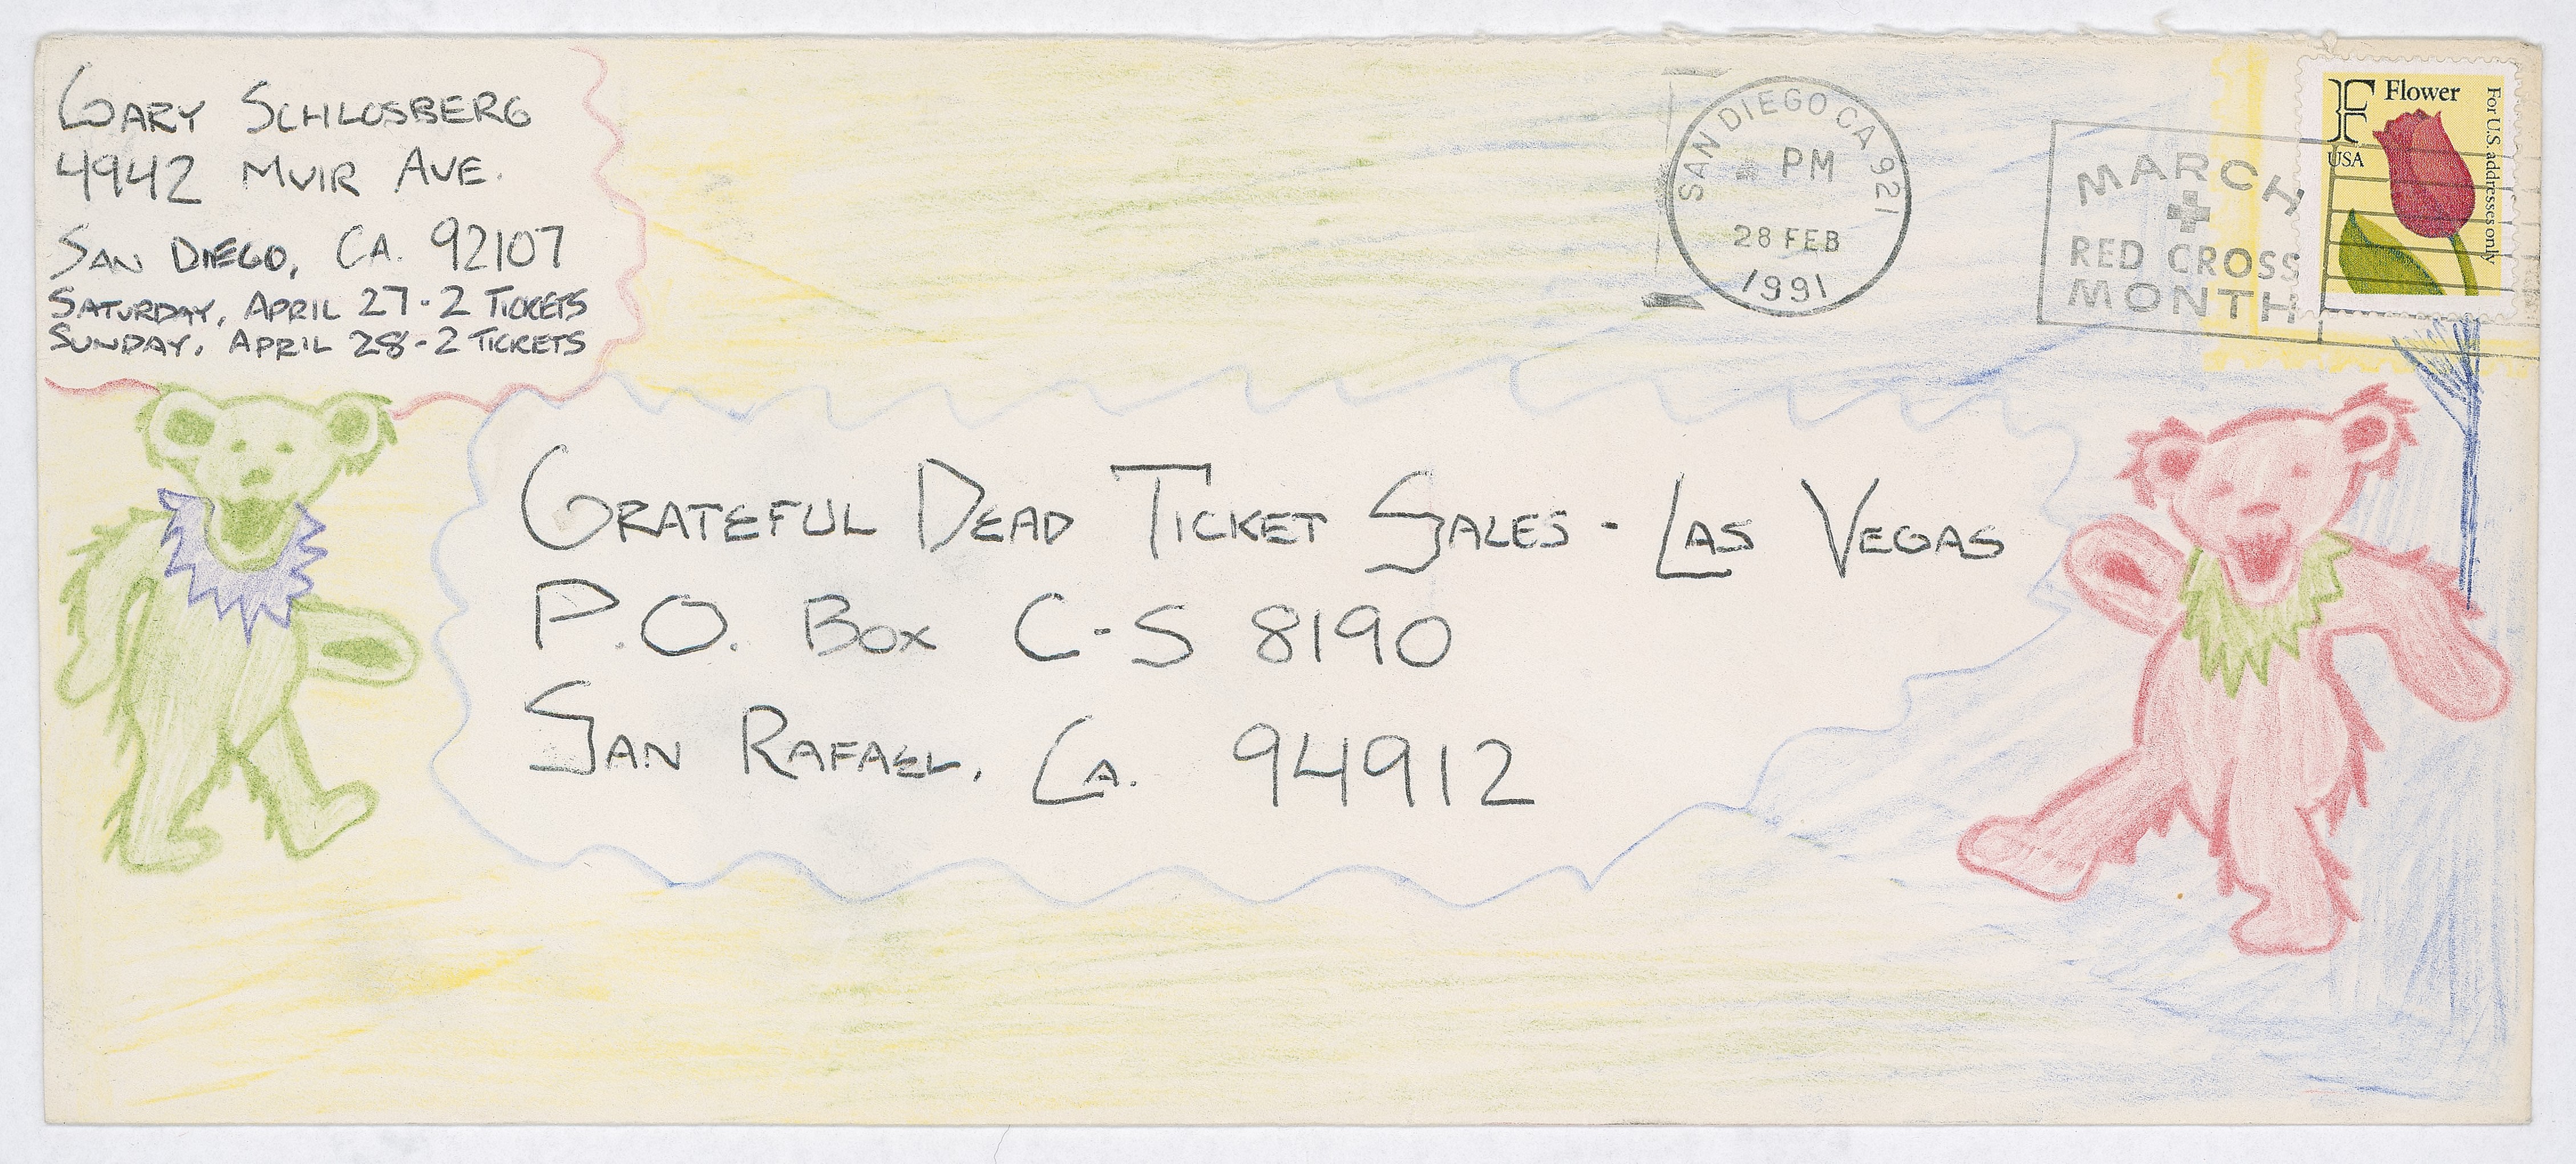 GARY SCHLOSBERG
4942 MUIR AVE.
SAN DIEGO, CA. 92107
SATURDAY, APRIL 27-2 TICKETS
SUNDAY, APRIL 28-2 TICKETS
SAN DIEGO CA 921
PM
28 FEB
1991
MARCH
RED CROSS
MONTH
F Flower
USA
For U.S. addresses only
GRATEFUL DEAD TICKET SALES - LAS VEGAS
P.O. BOX C-S 8190
SAN RAFAEL, CA. 94912